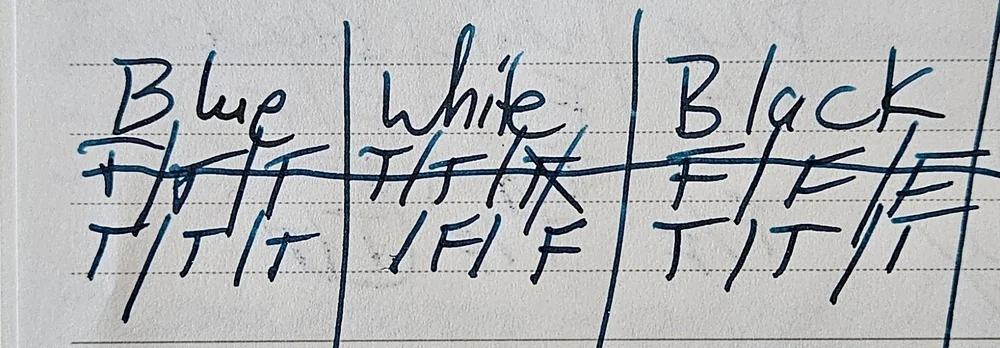 Blue White Black
T/T/T T/T/ F/F/F
T/T/T /F/F T/T/T